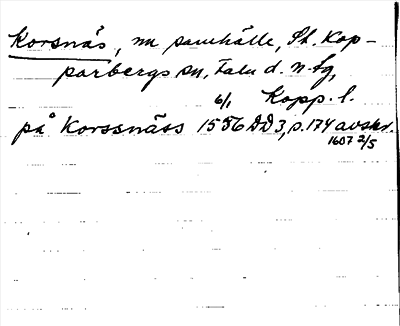 Korsnäs, nu samhälle, St. Kop-
parbergs sn, Falu d. n. tg,
6/1 Kopp. l.
på Korssnäss 1586 DD 3, s. 174 avskr.
1607 2/5